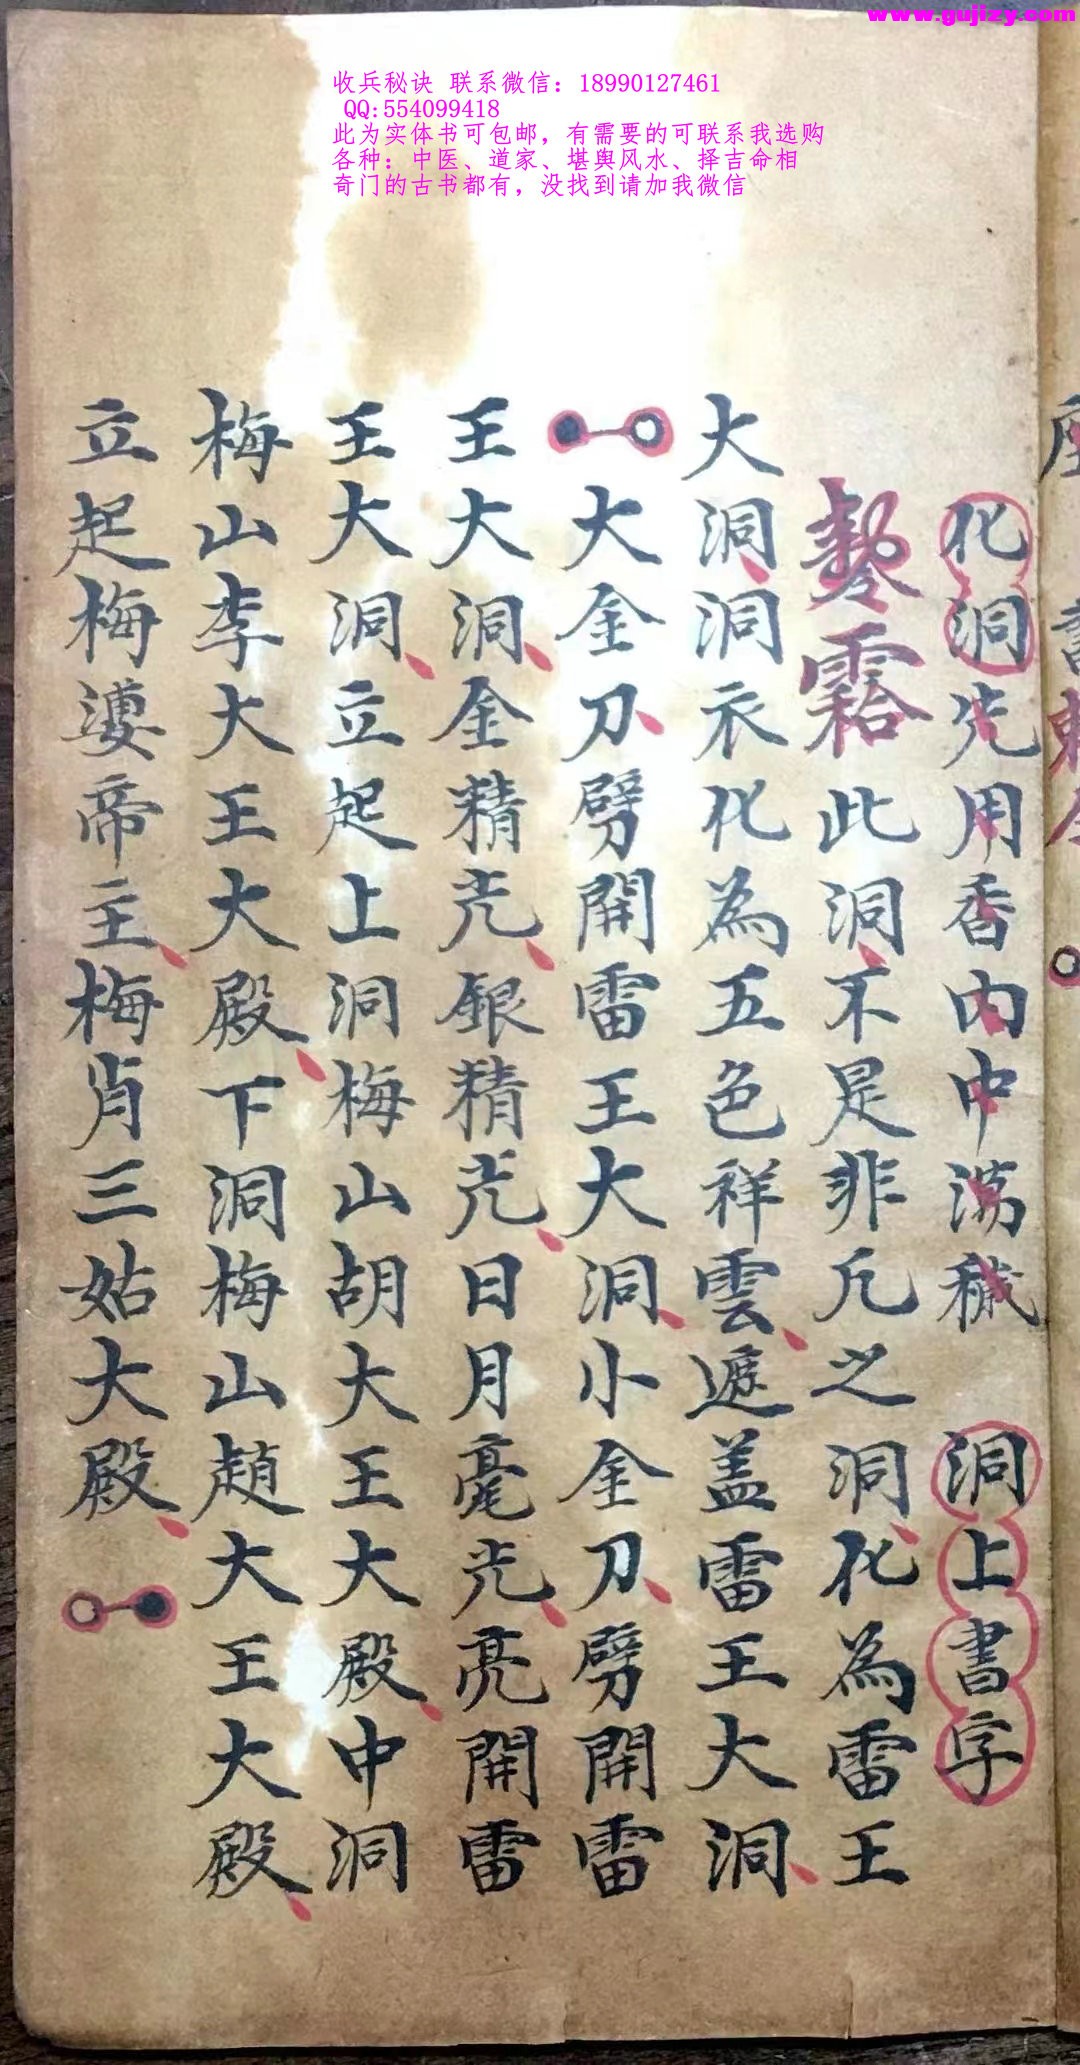 www.gujizy.com
收兵秘诀 联系微信：18990127461
QQ:554099418
此为实体书可包邮，有需要的可联系我选购
各种：中医、道家、堪舆风水、择吉命相
奇门的古书都有，没找到请加我微信
化洞先用香内中荡穢 洞上書字
此洞不是非凡之洞化為雷王
大洞洞衣化為五色祥雲遮盖雷王大洞
大金刀劈開雷王大洞小金刀劈開雷
王大洞金精光銀精光日月毫光亮開雷
王大洞立起上洞梅山胡大王大殿中洞
梅山李大王大殿下洞梅山趙大王大殿
立起梅婆帝主梅肖三姑大殿